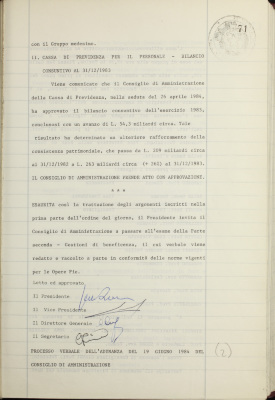 71
con il Gruppo medesimo.
II. CASSA DI PREVIDENZA PER IL PERSONALE - BILANCIO
CONSUNTIVO AL 31/12/1983
Viene comunicato che il Consiglio di Amministrazione
della Cassa di Previdenza, nella seduta del 29 aprile 1984,
ha approvato il bilancio consuntivo dell'esercizio 1983,
conclusosi con un avanzo di L. 54,3 miliardi circa. Tale
risultato ha determinato un ulteriore rafforzamento della
consistenza patrimoniale, che passa da L. 209 miliardi circa
al 31/12/1982 a L. 263 miliardi circa al 31/12/1983.
IL CONSIGLIO DI AMMINISTRAZIONE PRENDE ATTO CON APPROVAZIONE.
* * *
ESAURITA così la trattazione degli argomenti iscritti nella
prima parte dell'ordine del giorno, il Presidente invita il
Consiglio di Amministrazione a passare all'esame della Parte
seconda - Gestioni di beneficenza, il cui verbale viene
redatto e raccolto a parte in conformità delle norme vigenti
per le Opere Pie.
Letto ed approvato.
Il Presidente
Il Vice Presidente
Il Direttore Generale
Il Segretario
PROCESSO VERBALE DELL'ADUNANZA DEL 19 GIUGNO 1984 DEL
CONSIGLIO DI AMMINISTRAZIONE
(2)